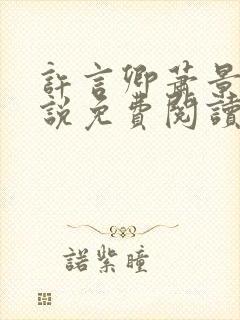 許言卿蕭景
說免費閱讀
諾紫瞳